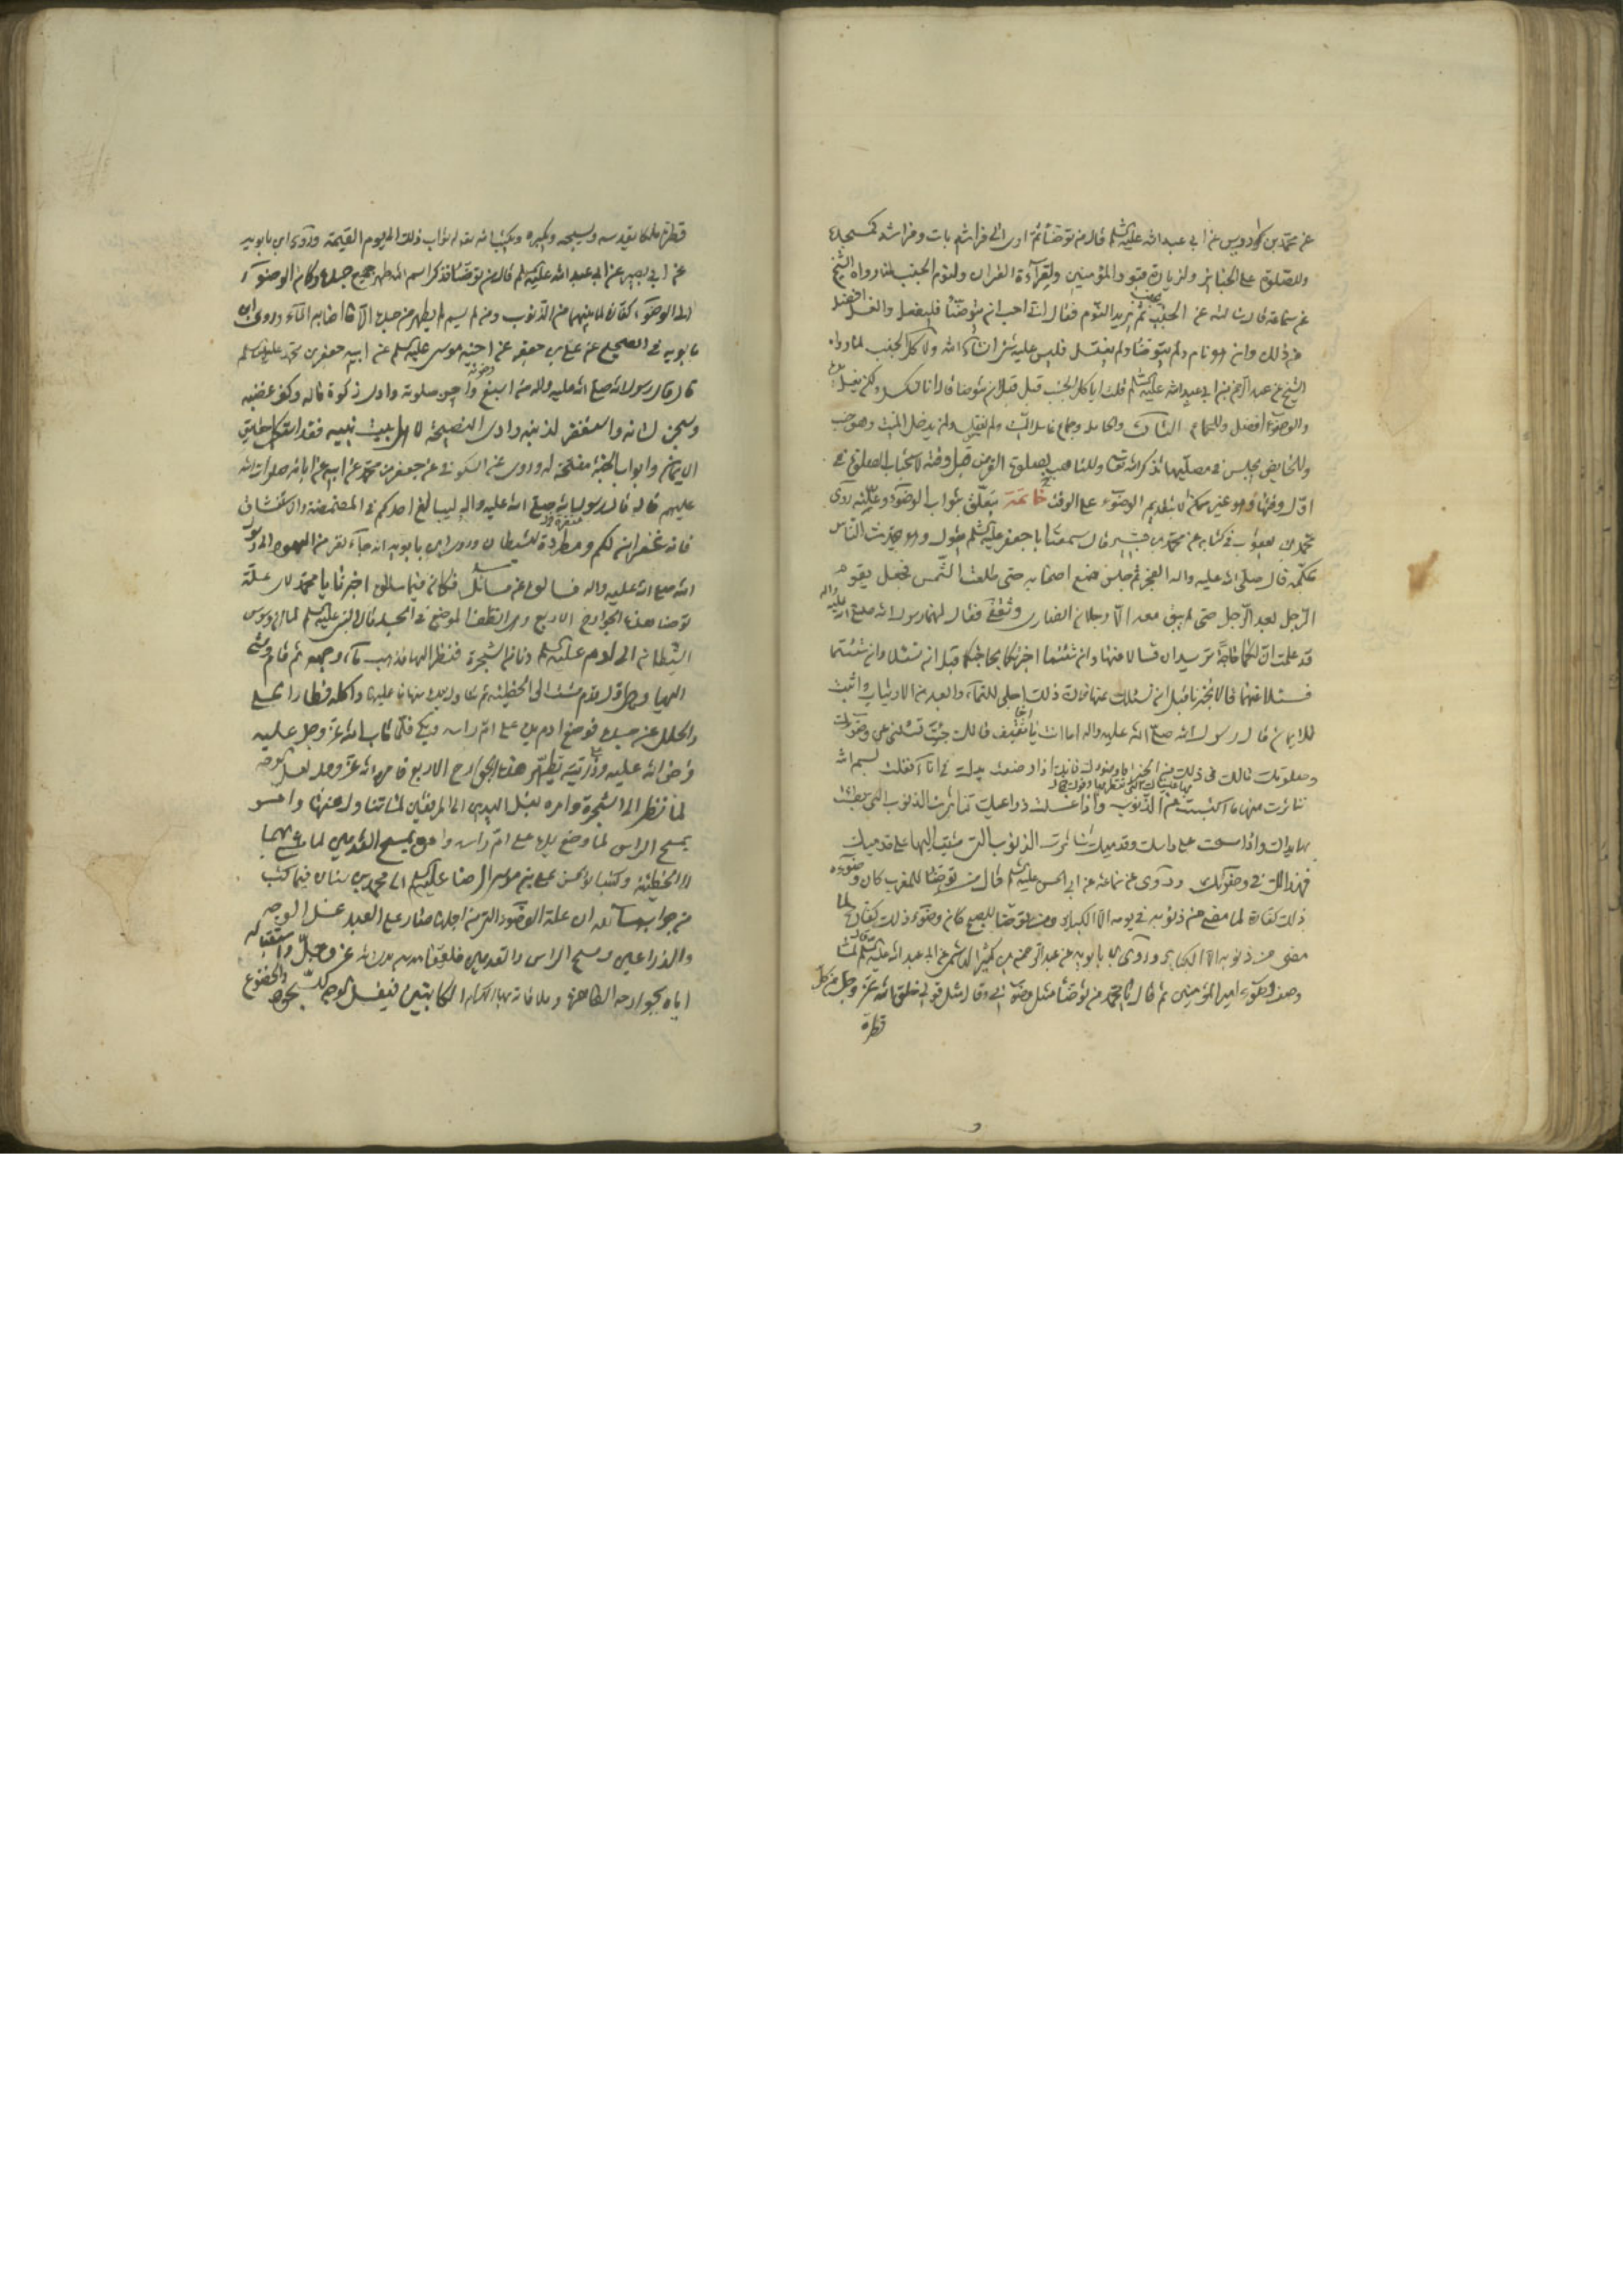 عن محمد بن كردوس عن ابي عبد الله عليه السلم قال من توضأ ثم اوى الى فراشه بات وفراشه كمسجده
وللصلوة على الجنائز ولزيارة قبور المؤمنين ولقرآءة القران ولنوم الجنب لما رواه الشيخ
عن سماعة قال سالته عن الجنب يجنب ثم يريد النوم فقال ان احب ان يتوضأ فليفعل والغسل افضل
من ذلك وان هو نام ولم يتوضأ ولم يغتسل فليس عليه شئ انشآء الله ولاكل الجنب لما رواه
الشيخ عن عبد الرحمن بن ابي عبد الله عليه السلم قلت اياكل الجنب قبل ان يتوضا قال انا لنكسل ولكن يغسل يده
والوضوء افضل ولجماع وجماع غاسل الميت ولم يغتسل ولمن يدخل الميت
وللحايض يجلس في مصليها تذكر الله تعالى وللتاهب لصلوة الفرض قبل وقته لاستحباب الصلوة في
اول وقتها وهو غير ممكن الا بتقديم الوضوء على الوقت خاتمة يتعلق بثواب الوضوء وعلته روى
محمد بن يعقوب في كتابه عن محمد بن قال سمعت ابا جعفر عليه السلم يقول وهو يحدث الناس
بمكة قال صلى الله عليه واله الفجر ثم جلس مع اصحابه حتى طلعت الشمس فجعل يقوم
الرجل بعد الرجل حتى لم يبق معه الا رجلان انصارى وثقفى فقال لهما رسول الله صلى الله عليه واله
قد علمت ان لكما حاجة تريدان تسالا عنها وان شئتما اخبرتكما بحاجتكما قبل ان تسئلا وان شئتما
فسئلا عنها قالا تخبرنا قبل ان نسئلك عنها فان ذلك اجلى للعمآء وابعد من الارتياب واثبت
للايمان فقال رسول الله صلى الله عليه واله اما انت يا اخا ثقيف فانك جئت تسئلنى عن وضوئك
وصلوتك مالك فى ذلك من الخير اما وضوئك فانك اذا وضعت يدك في انائك فقلت بسم الله
تناثرت منها ما اكتسبت من الذنوب واذا غسلت ذراعيك تناثرت الذنوب التي بطشت
بها يداك واذا مسحت على راسك وقدميك تناثرت الذنوب التى مشيت اليها على قدميك
فهذا لك في وضوئك وروى عن سماعة عن ابي الحسن عليه السلم قال من توضأ للمغرب كان وضوءه
ذلك كفارة لما مضى من ذنوبه في يومه الا الكباير ومن توضأ للصبح كان وضوءه ذلك كفارة لما
مضى من ذنوبه الا الكباير وروى ابن بابويه عن عبد الرحمن بن كثير الهاشمي عن ابي عبد الله عليه السلم لما
وصف وضوء امير المؤمنين ثم قال يا محمد من توضأ مثل وضوئى وقال مثل قولى خلق الله عز وجل من كل
قطرة
قطرة ملكا يقدسه ويسبحه ويكبره ويكتب الله له ثواب ذلك الى يوم القيمة وروى ابن بابويه
عن ابي بصير عن ابي عبد الله عليه السلم قال من توضأ فذكر اسم الله طهر جميع جسده وكان الوضوء
الى الوضوء كفارة لما بينهما من الذنوب ومن لم يسم لم يطهر من جسده الا ما اصابه المآء وروى ابن
بابويه في الصحيح عن علي بن جعفر عن اخيه موسى عليه السلم عن ابيه جعفر بن محمد عليه السلم
قال قال رسول الله صلى الله عليه واله من اسبغ وضوئه واحسن صلوته وادى زكوة ماله وكف غضبه
وسجن لسانه واستغفر لذنبه وادى النصيحة لاهل بيت نبيه فقد استكمل حقايق
الايمان وابواب الجنة مفتحة له وروى عن السكوني عن جعفر بن محمد عن ابيه عن ابائه صلوات الله
عليهم قال قال رسول الله صلى الله عليه واله ليبالغ احدكم في المضمضة والاستنشاق
فانه غفران لكم ومطردة للشيطان وروى ابن بابويه انه جآء نفر من اليهود الى رسول
الله صلى الله عليه واله فسالوه عن مسائل فكان فيما سالوه اخبرنا يا محمد لاى علة
توضا هذه الجوارح الاربع وهى انظف المواضع في الجسد فقال النبى عليه السلم لما ان وسوس
الشيطان الى ادم عليه السلم ودنا من الشجرة فنظر اليها فذهب مآء وجهه ثم قام ومشى
اليها وهى اول قدم مشت الى الخطيئة ثم تناول بيده منها ما عليها واكل فطار الحلى
والحلل عن جسده فوضع ادم يده على ام راسه وبكى فلما تاب الله عز وجل عليه
فرض الله عليه وعلى ذريته تطهير هذه الجوارح الاربع فامر الله عز وجل بغسل الوجه
لما نظر الى الشجرة وامره بغسل اليدين الى المرفقين لما تناول منها وامره
بمسح الراس لما وضع يده على ام راسه وامره بمسح القدمين لما مشى بهما
الى الخطيئة وكتب ابو الحسن علي بن موسى الرضا عليه السلم الى محمد بن سنان فيما كتب
من جواب مسائله ان علة الوضوء التي من اجلها صار على العبد غسل الوجه
والذراعين ومسح الراس والقدمين فلقيامه بين يدى الله عز وجل واستقباله
اياه بجوارحه الظاهرة وملاقاته بها الكرام الكاتبين فيغسل الوجه للسجود والخضوع